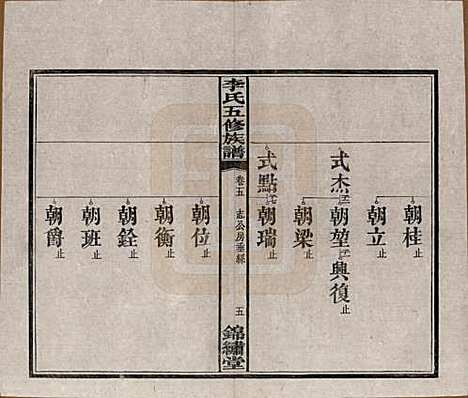 朝桂止
朝立止
式杰 朝堃 興復止
朝梁止
式點 朝瑞止
李氏五修族譜 卷五 志公房垂絲 五 錦繡堂
朝位止
朝衡止
朝銓止
朝班止
朝爵止